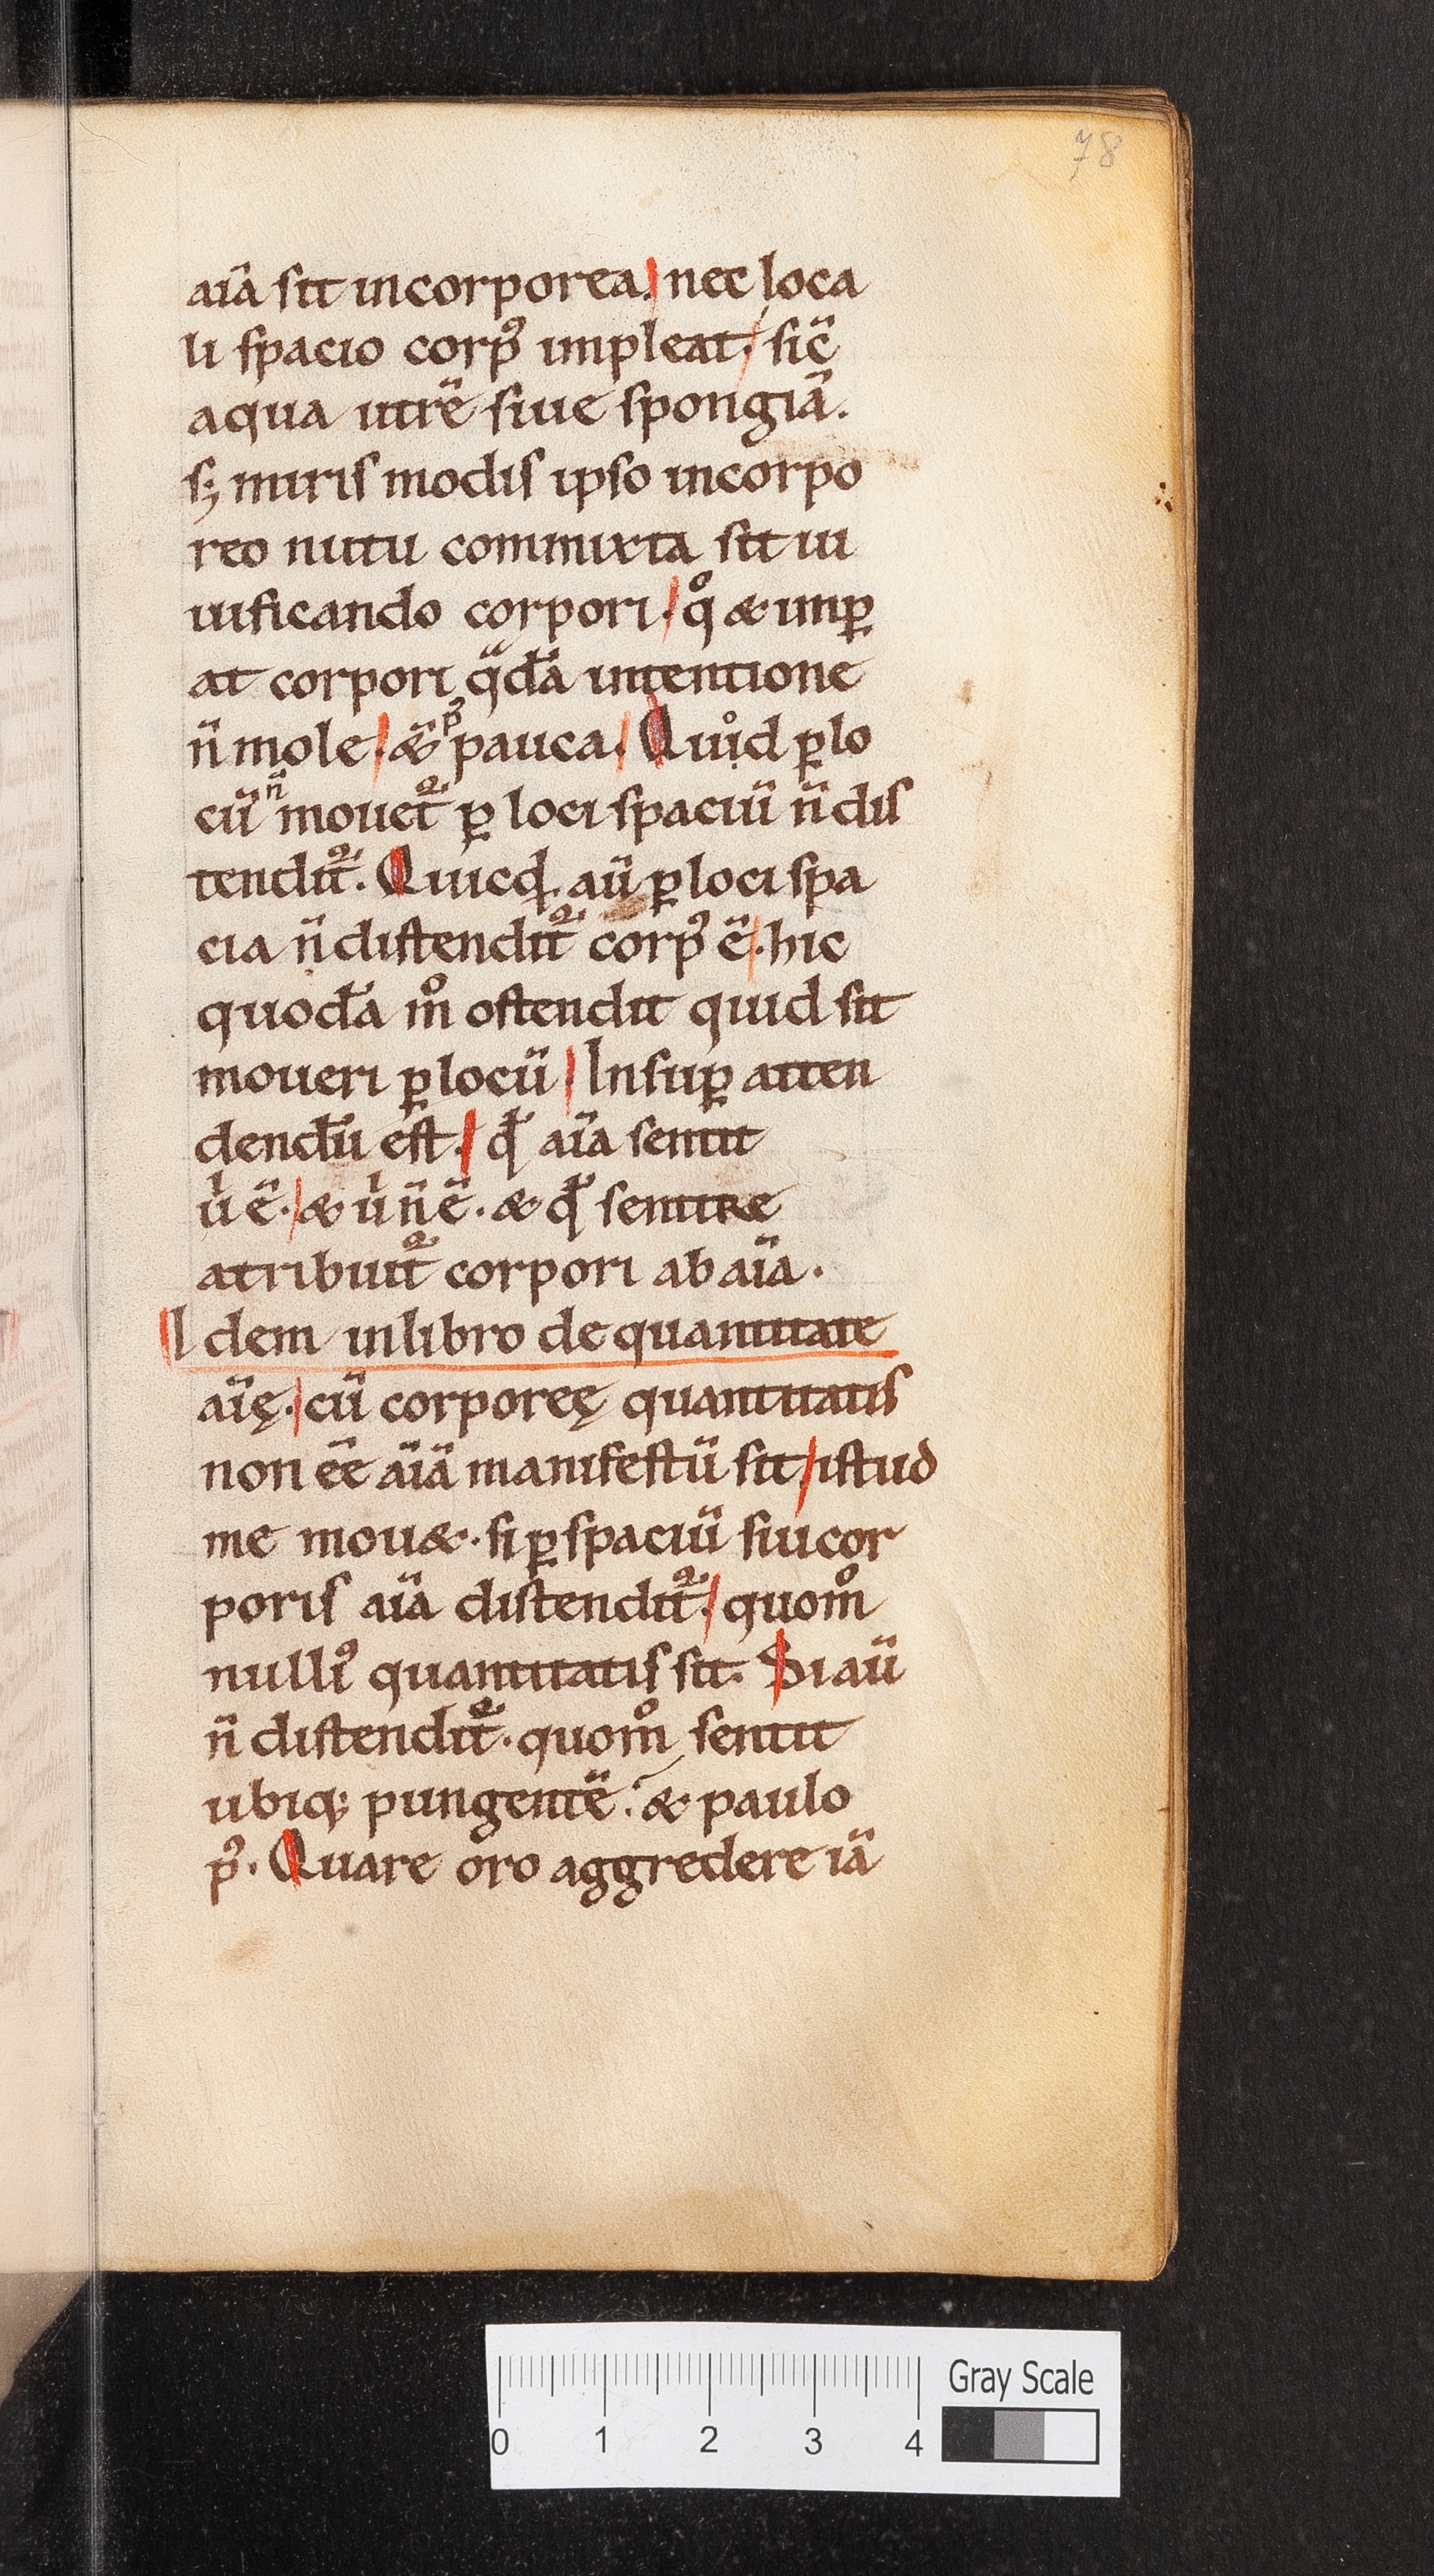 78
aiā sit incorporea. nec loca
li spacio corpꝰ impleat. sic̄
aqua utrē siue spongiā.
sꝫ miris modis ipso incorpo
reo nutu commixta sit ui
uificando corpori. qͦ & imꝑ
at corpori qͣdā intentione
n̄ mole. &̄ pꝰ pauca. Quid ꝑ lo
cū n̄ mouet᷑ ꝑ loci spaciū n̄ dis
tendit᷑. Quicq̣ aū ꝑ loci spa
cia n̄ distendit᷑ corpꝰ ē. hic
quodā mͦ ostendit quid sit
moueri ꝑ locū Insuꝑ atten
dendū est. qđ aīa sentit
ù ē. & ù n̄ ē. & qđ sentire
atribuit᷑ corpori ab aīa.
Idem in libro de quantitate
aīę. cū corporeę quantitatis
non eē aīā manifestū sit. istud
me mou&. si ꝑ spaciū siu cor
poris aīa distendit᷑. quomͦ
nulliꝰ quantitatis sit. Si aū
n̄ distendit᷑. quomͦ sentit
ubiqꝫ pungentē. & paulo
pꝰ. Quare oro aggredere iā
Gray Scale
0 1 2 3 4